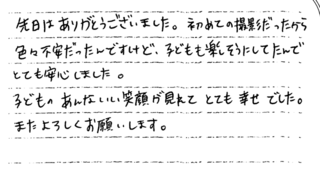 先日はありがとうございました。初めての撮影だったから
色々不安だったんですけど、子どもも楽しそうにしてたんで
とても安心しました。
子どものあんないい笑顔が見れてとても幸せでした。
またよろしくお願いします。